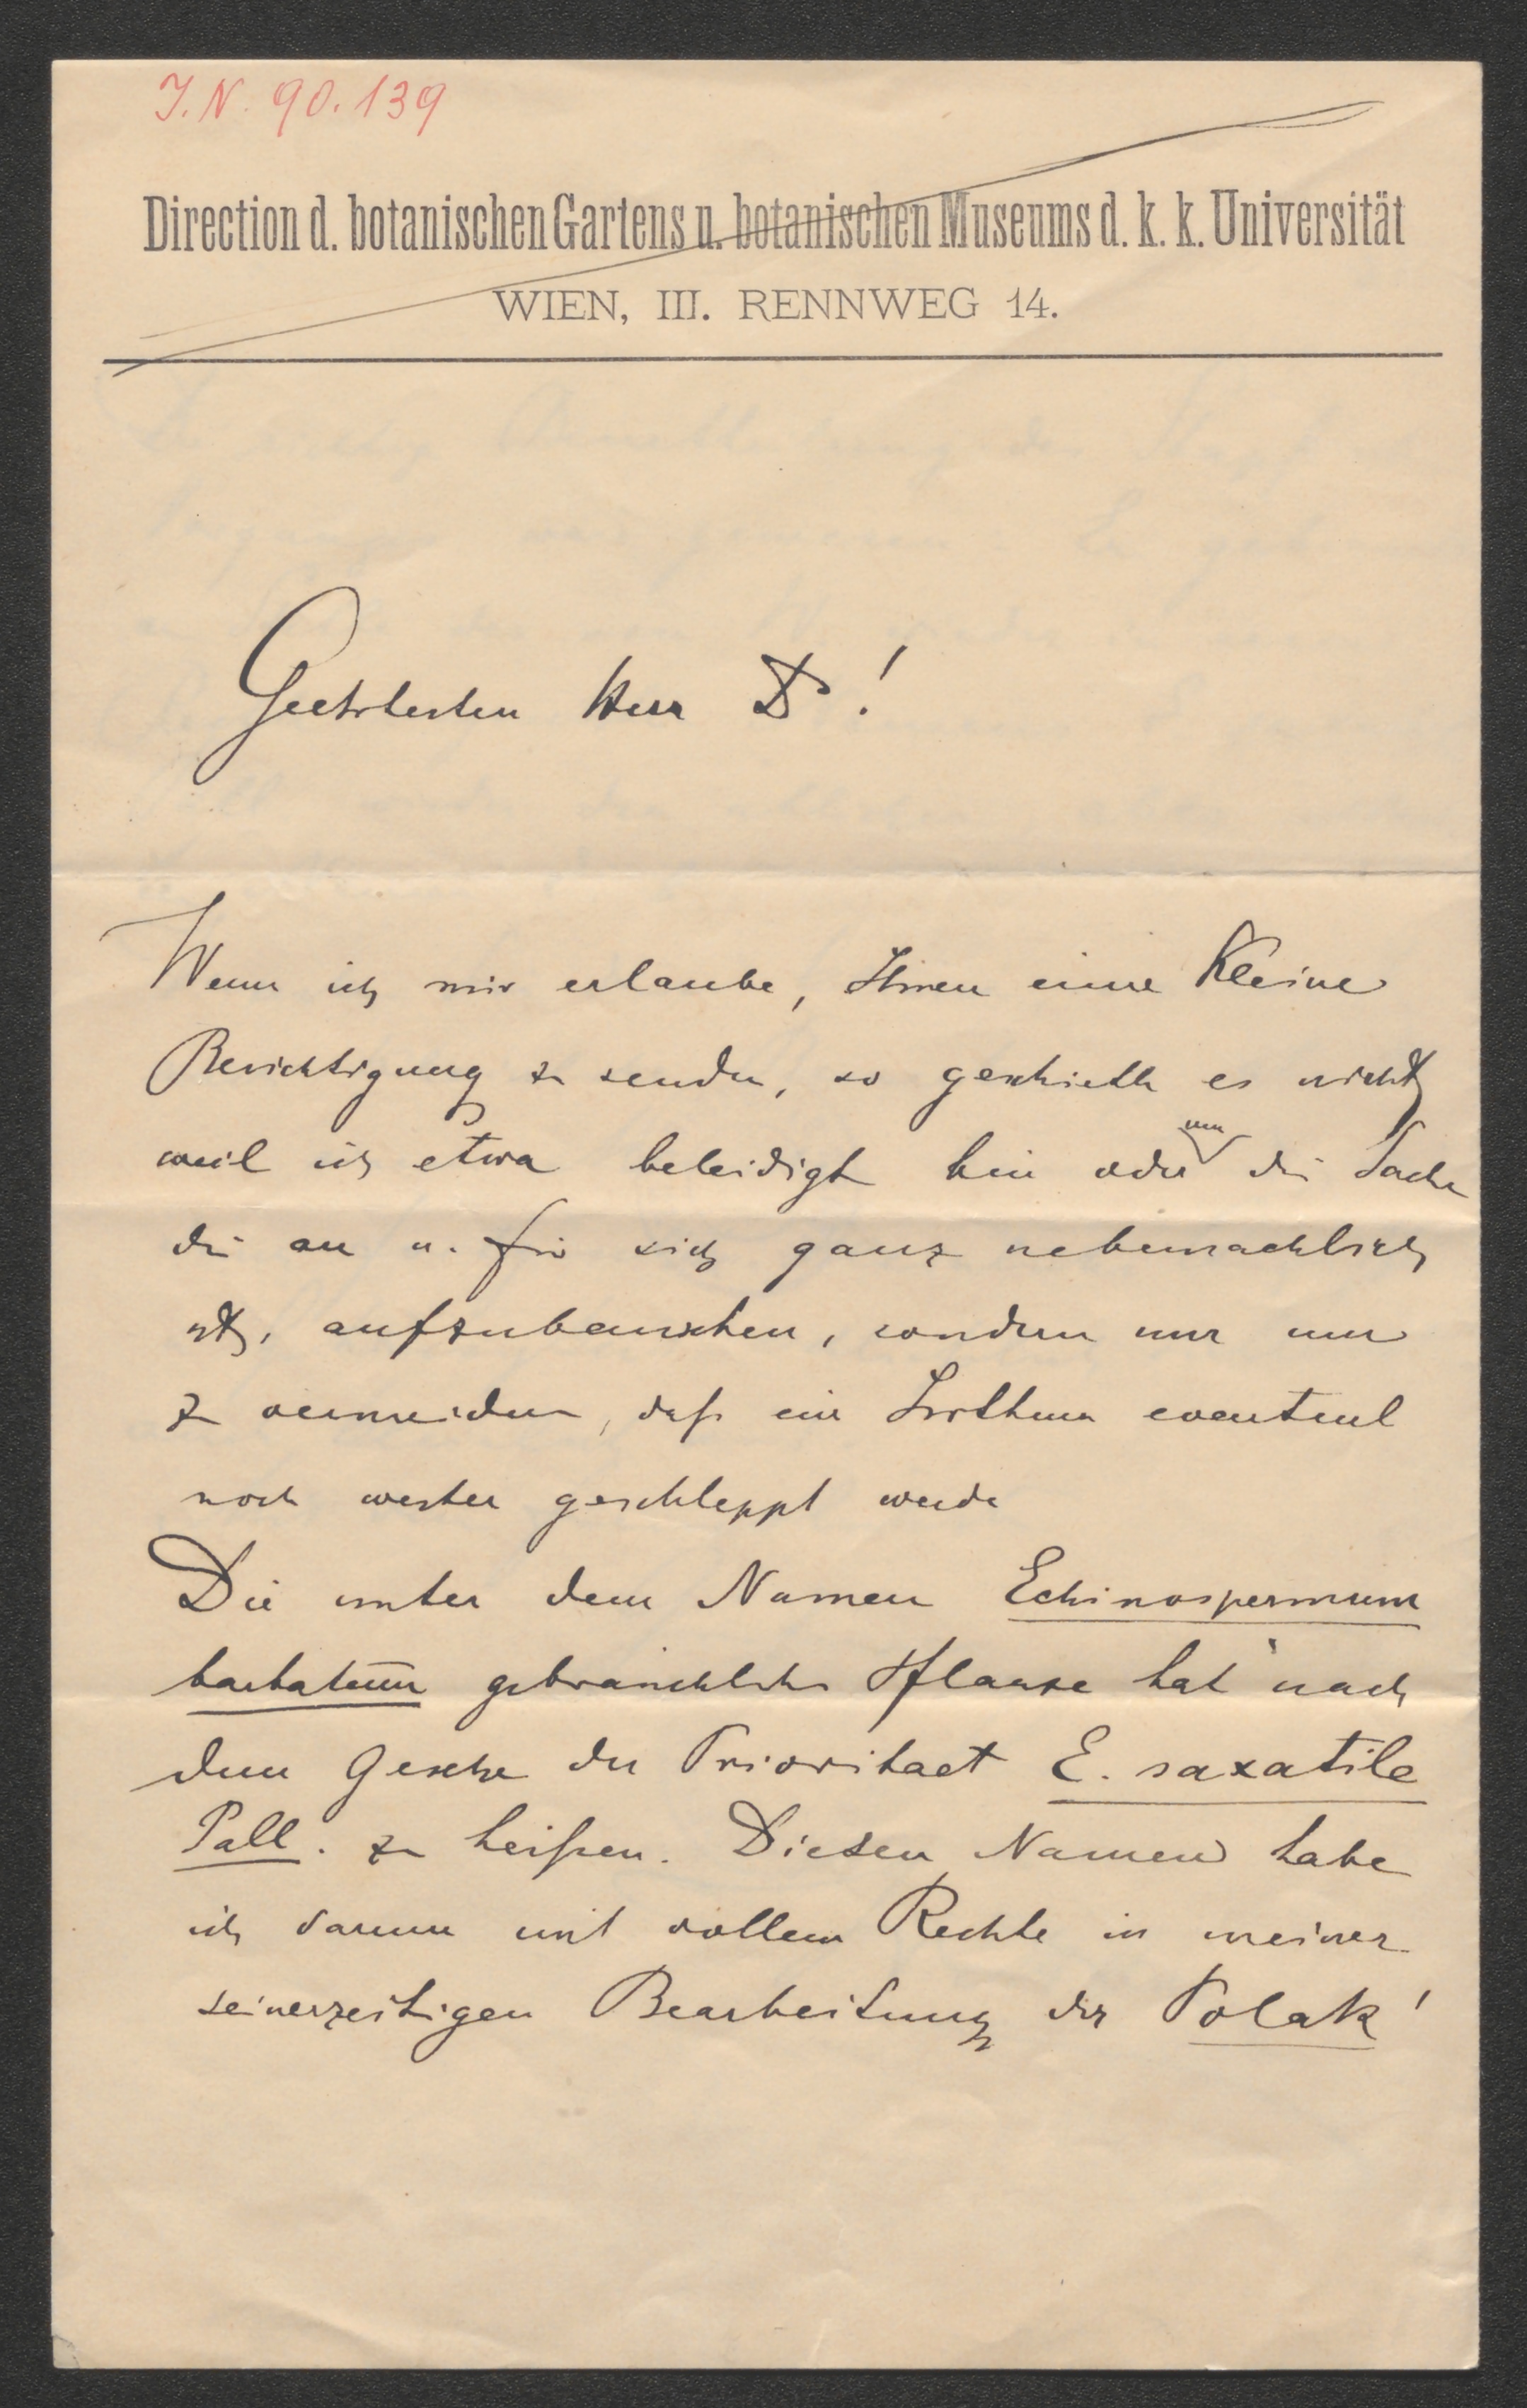 J.N. 90.139
Direction d. botanischen Gartens u. botanischen Museums d. k. k. Universität
WIEN, III. RENNWEG 14.
Geehrtesten Herr Dr!
Wenn ich mir erlaube, Ihnen eine kleine
Berichtigung zu senden, so geschieth es nicht
weil ich etwa beleidigt bin oder um die Sache
die an u. für sich ganz nebensächlich
ist, aufzubauschen, sondern nur um
zu vermeiden, daß ein Irrthum eventuel
noch weiter geschleppt werde
Die unter dem Namen Echinospermum
barbatum gebräuchliche Pflanze hat nach
dem Gesetze der Prioritaet E. saxatile
Pall. zu heißen. Diesen Namen habe
ich darum mit vollem Rechte in meiner
seinerzeitigen Bearbeitung der Polak'